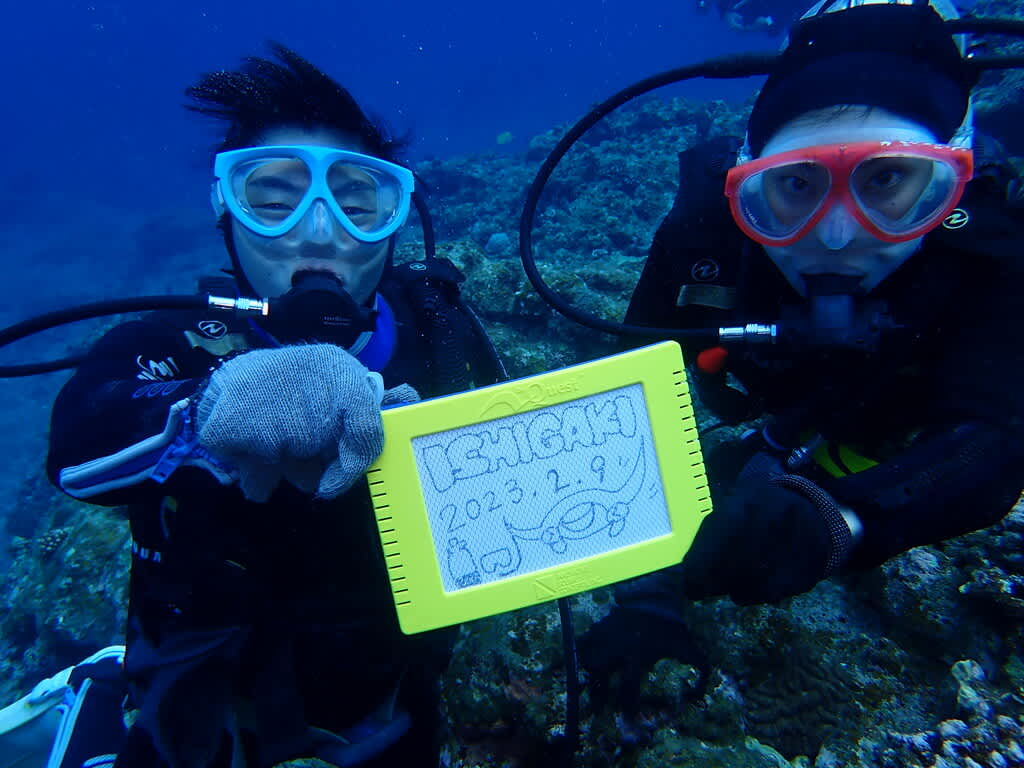 Quest
ISHIGAKI
2023.2.9